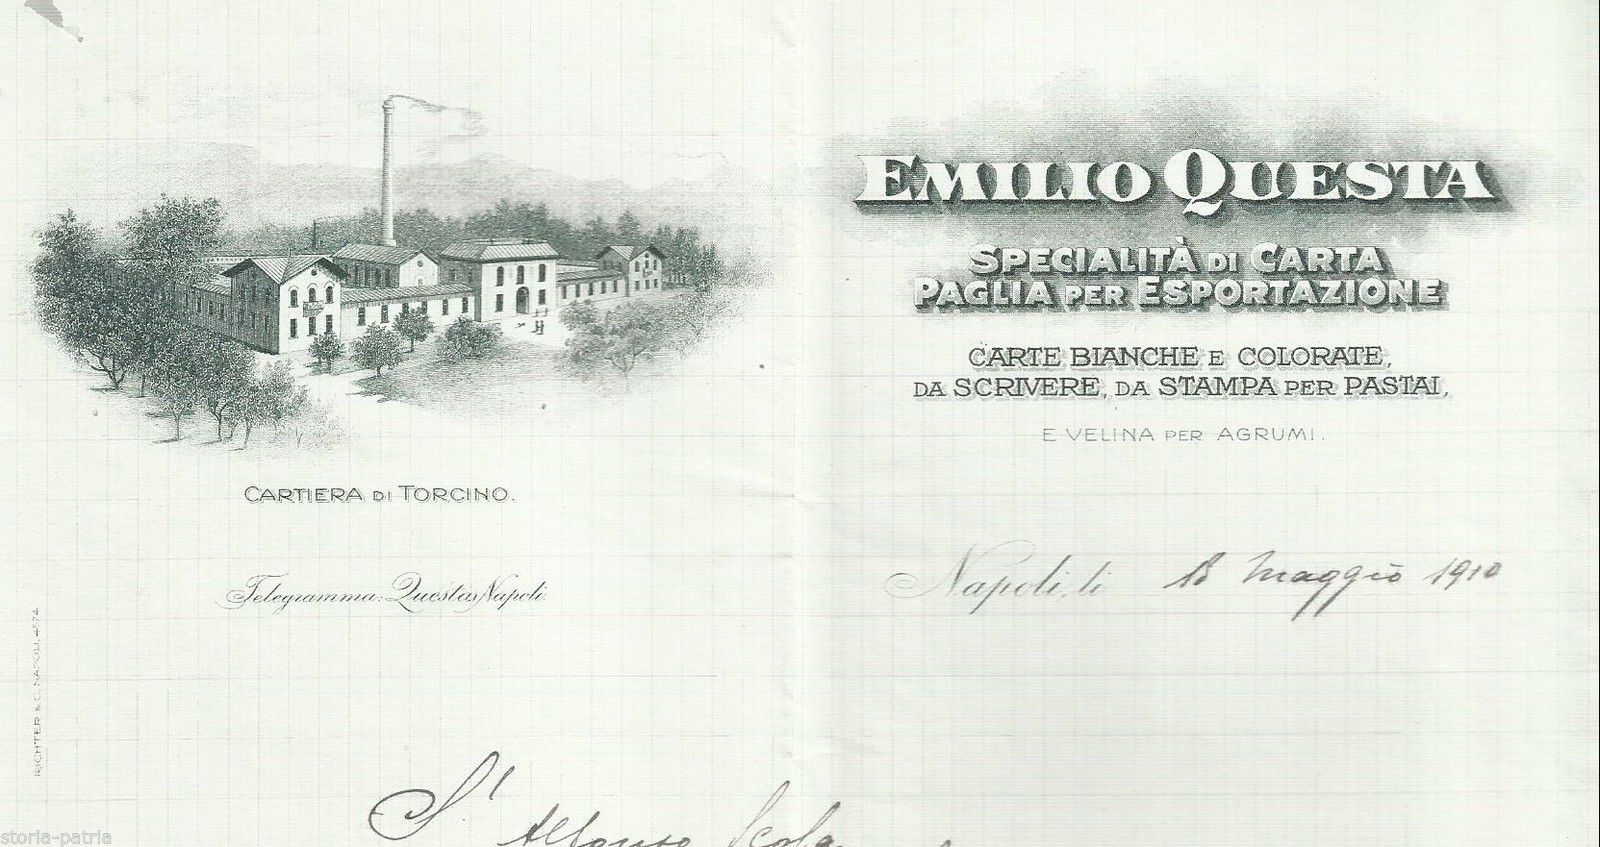 EMILIO QUESTA
SPECIALITÀ DI CARTA
PAGLIA PER ESPORTAZIONE
CARTE BIANCHE E COLORATE,
DA SCRIVERE, DA STAMPA PER PASTAI,
E VELINA PER AGRUMI.
CARTIERA DI TORCINO.
Telegramma: Questas Napoli
Napoli, li 18 Maggio 1910
RICHTER & C. NAPOLI. 4574
Alfonso
storia-patria